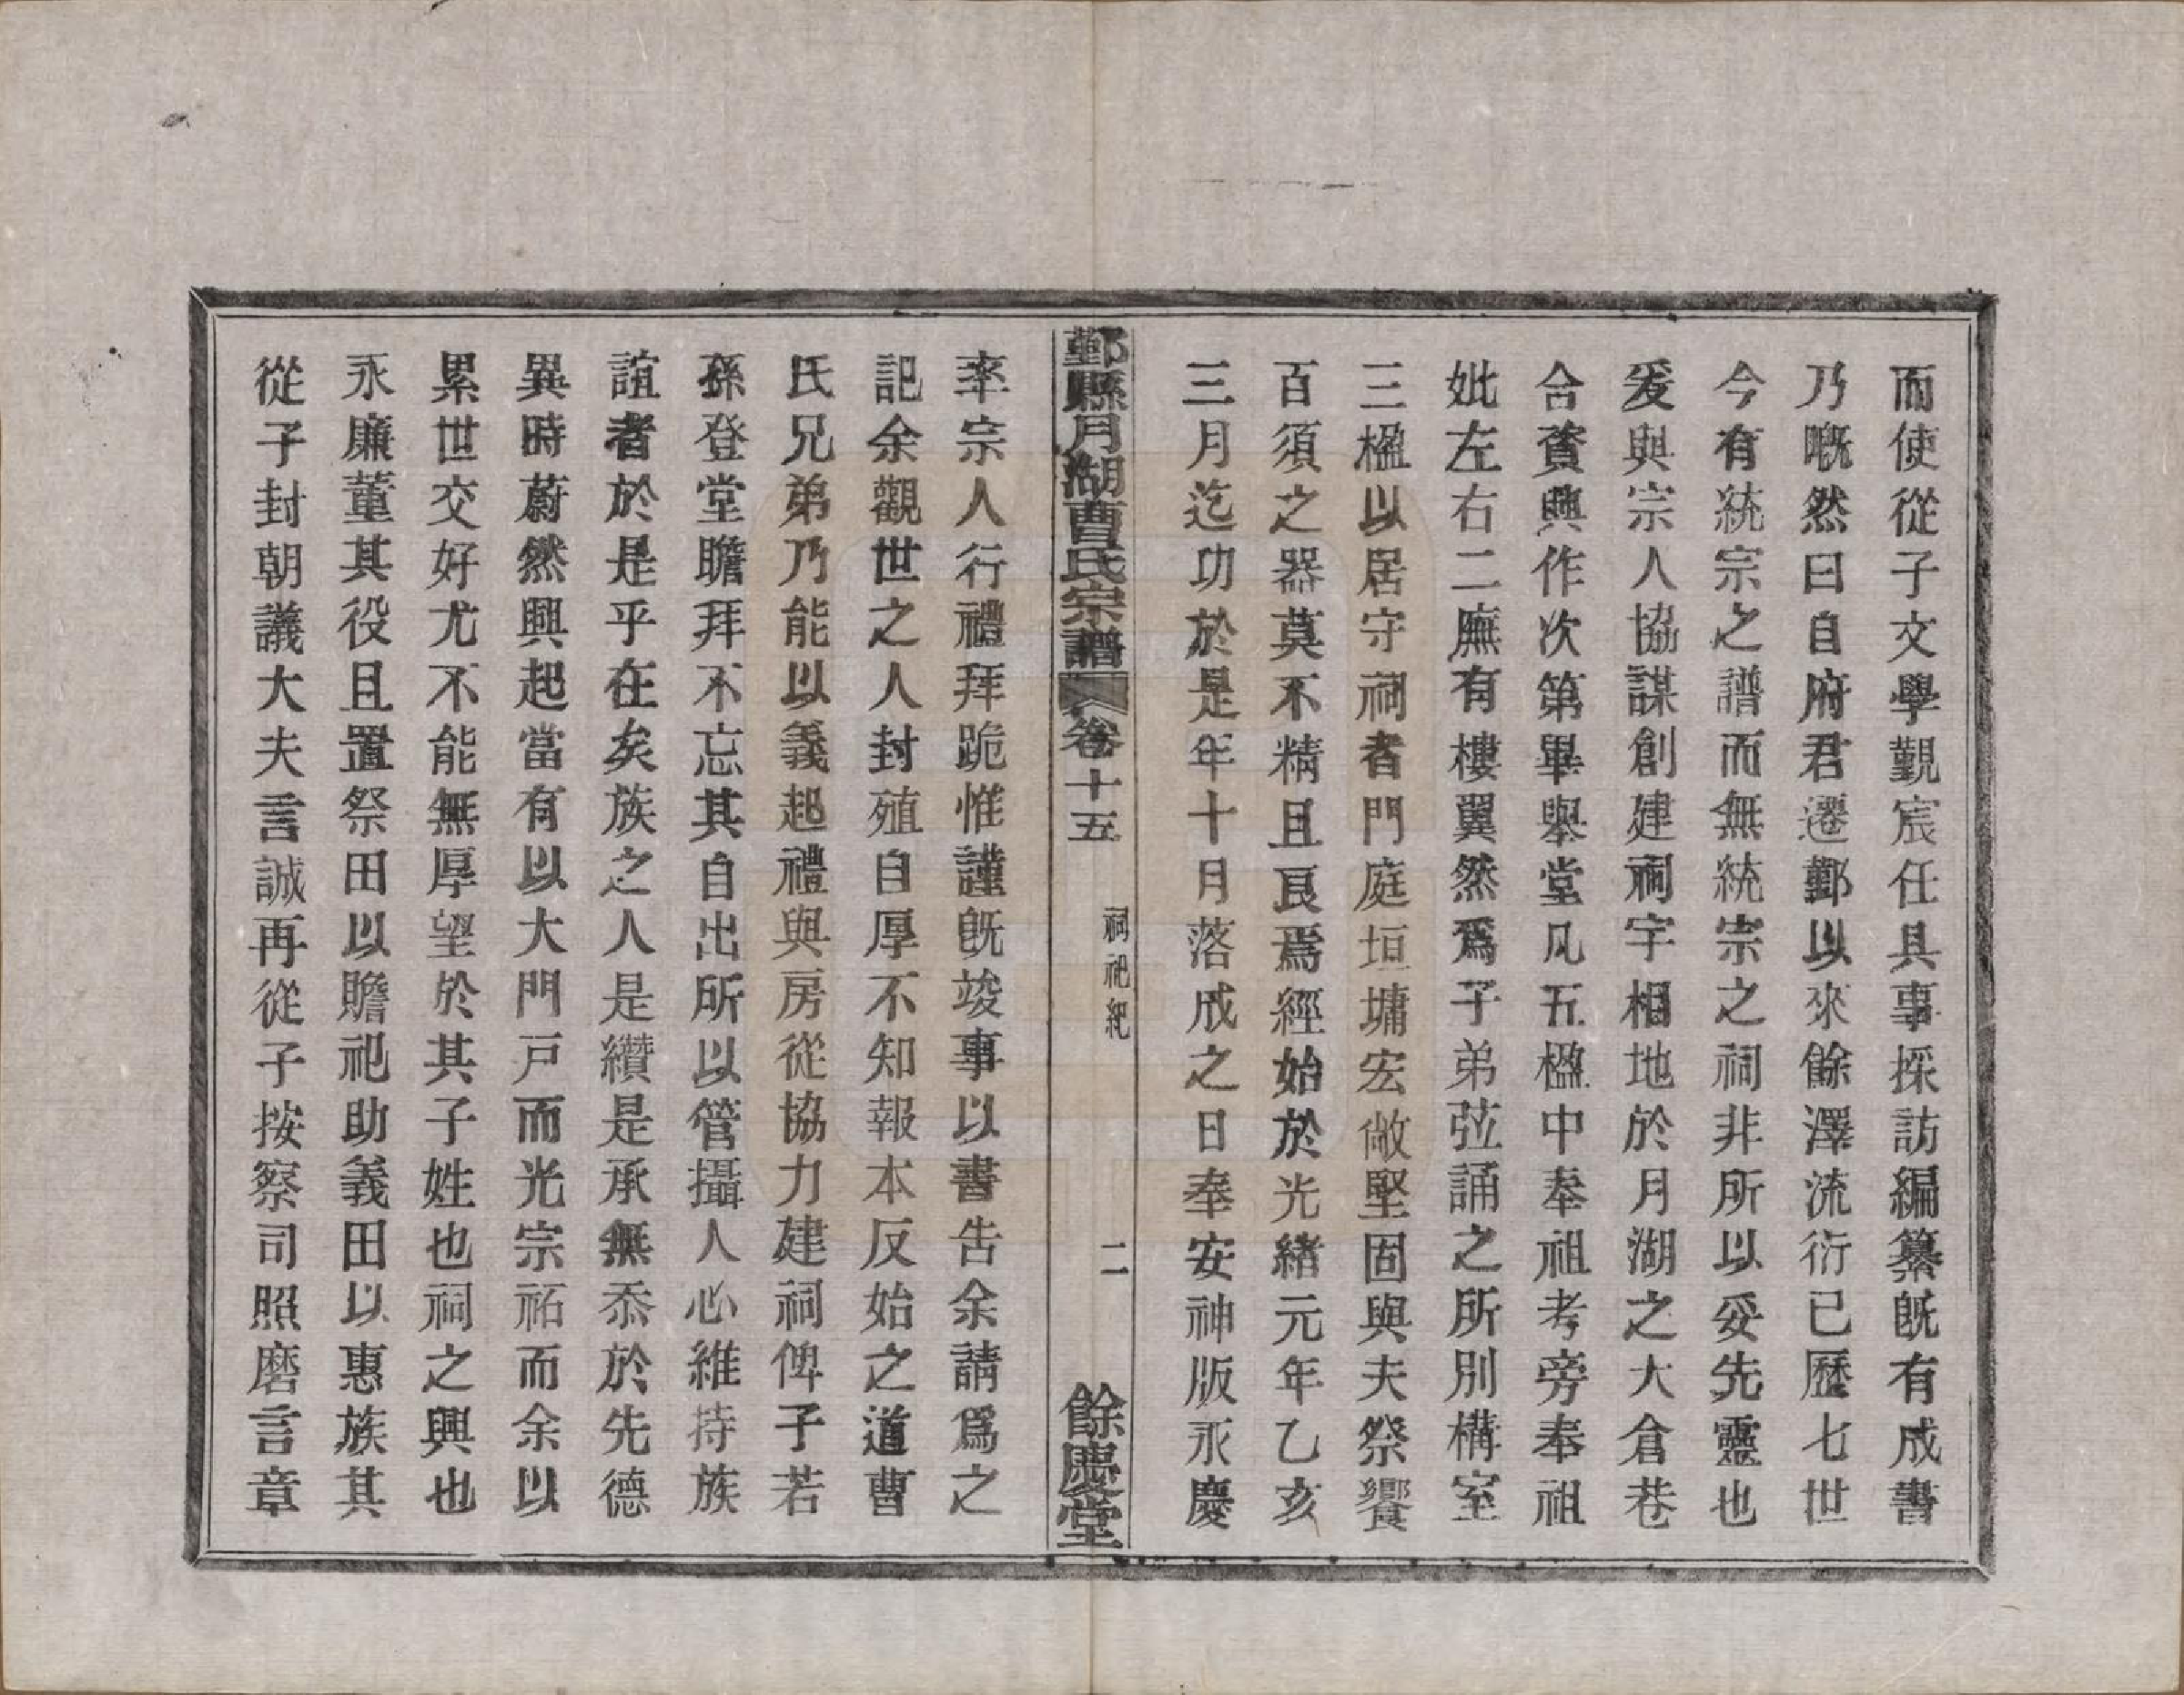 而使從子文學觐宸任具事採訪編纂旣有成書
乃嘅然曰自府君遷鄞以來餘澤流衍已歷七世
今有統宗之譜而無統宗之祠非所以妥先靈也
爰與宗人協謀創建祠宇相地於月湖之大倉巷
合資興作次第畢舉堂凡五楹中奉祖考旁奉祖
妣左右二廡有樓翼然爲子弟弦誦之所別構室
三楹以居守祠者門庭垣墉宏敞堅固與夫祭饗
百須之器莫不精且良焉經始於光緖元年乙亥
三月迄功於是年十月落成之日奉安神版永慶
鄞縣月湖曹氏宗譜 卷十五 祠祀紀 二 餘慶堂
率宗人行禮拜跪惟謹旣竣事以書告余請爲之
記余觀世之人封殖自厚不知報本反始之道曹
氏兄弟乃能以義起禮與房從協力建祠俾子若
孫登堂瞻拜不忘其自出所以管攝人心維持族
誼者於是乎在矣族之人是纘是承無忝於先德
異時蔚然興起當有以大門戸而光宗祏而余以
累世交好尤不能無厚望於其子姓也祠之興也
永廉董其役且置祭田以贍祀助義田以惠族其
從子封朝議大夫言誠再從子按察司照磨言章